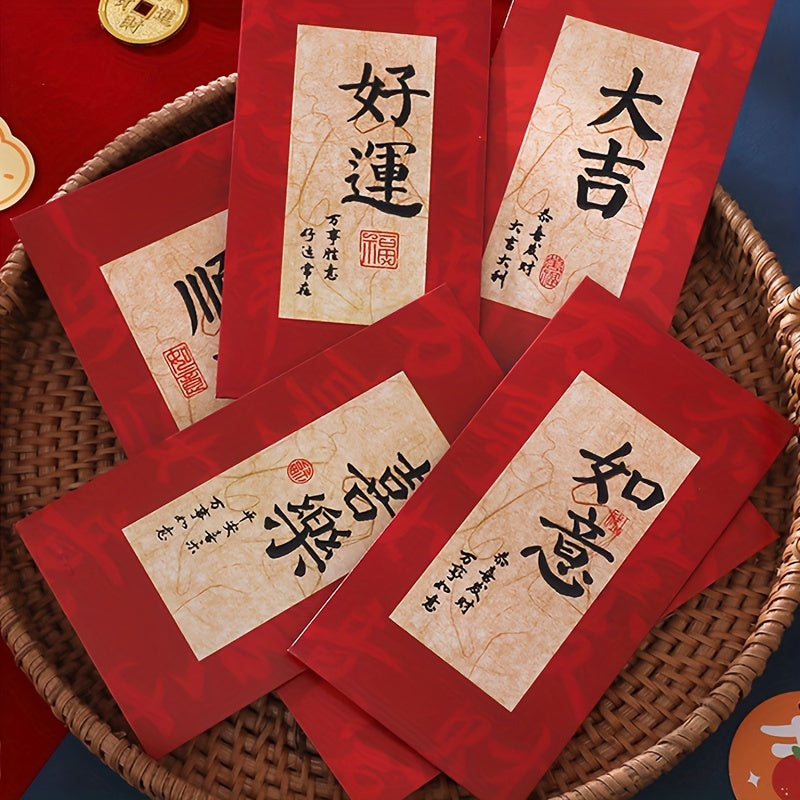 財進
好運
万事胜意
好运常在
福
大吉
恭喜发财
大吉大利
順
喜樂
平安喜乐
万事如意
如意
恭喜发财
万事如意